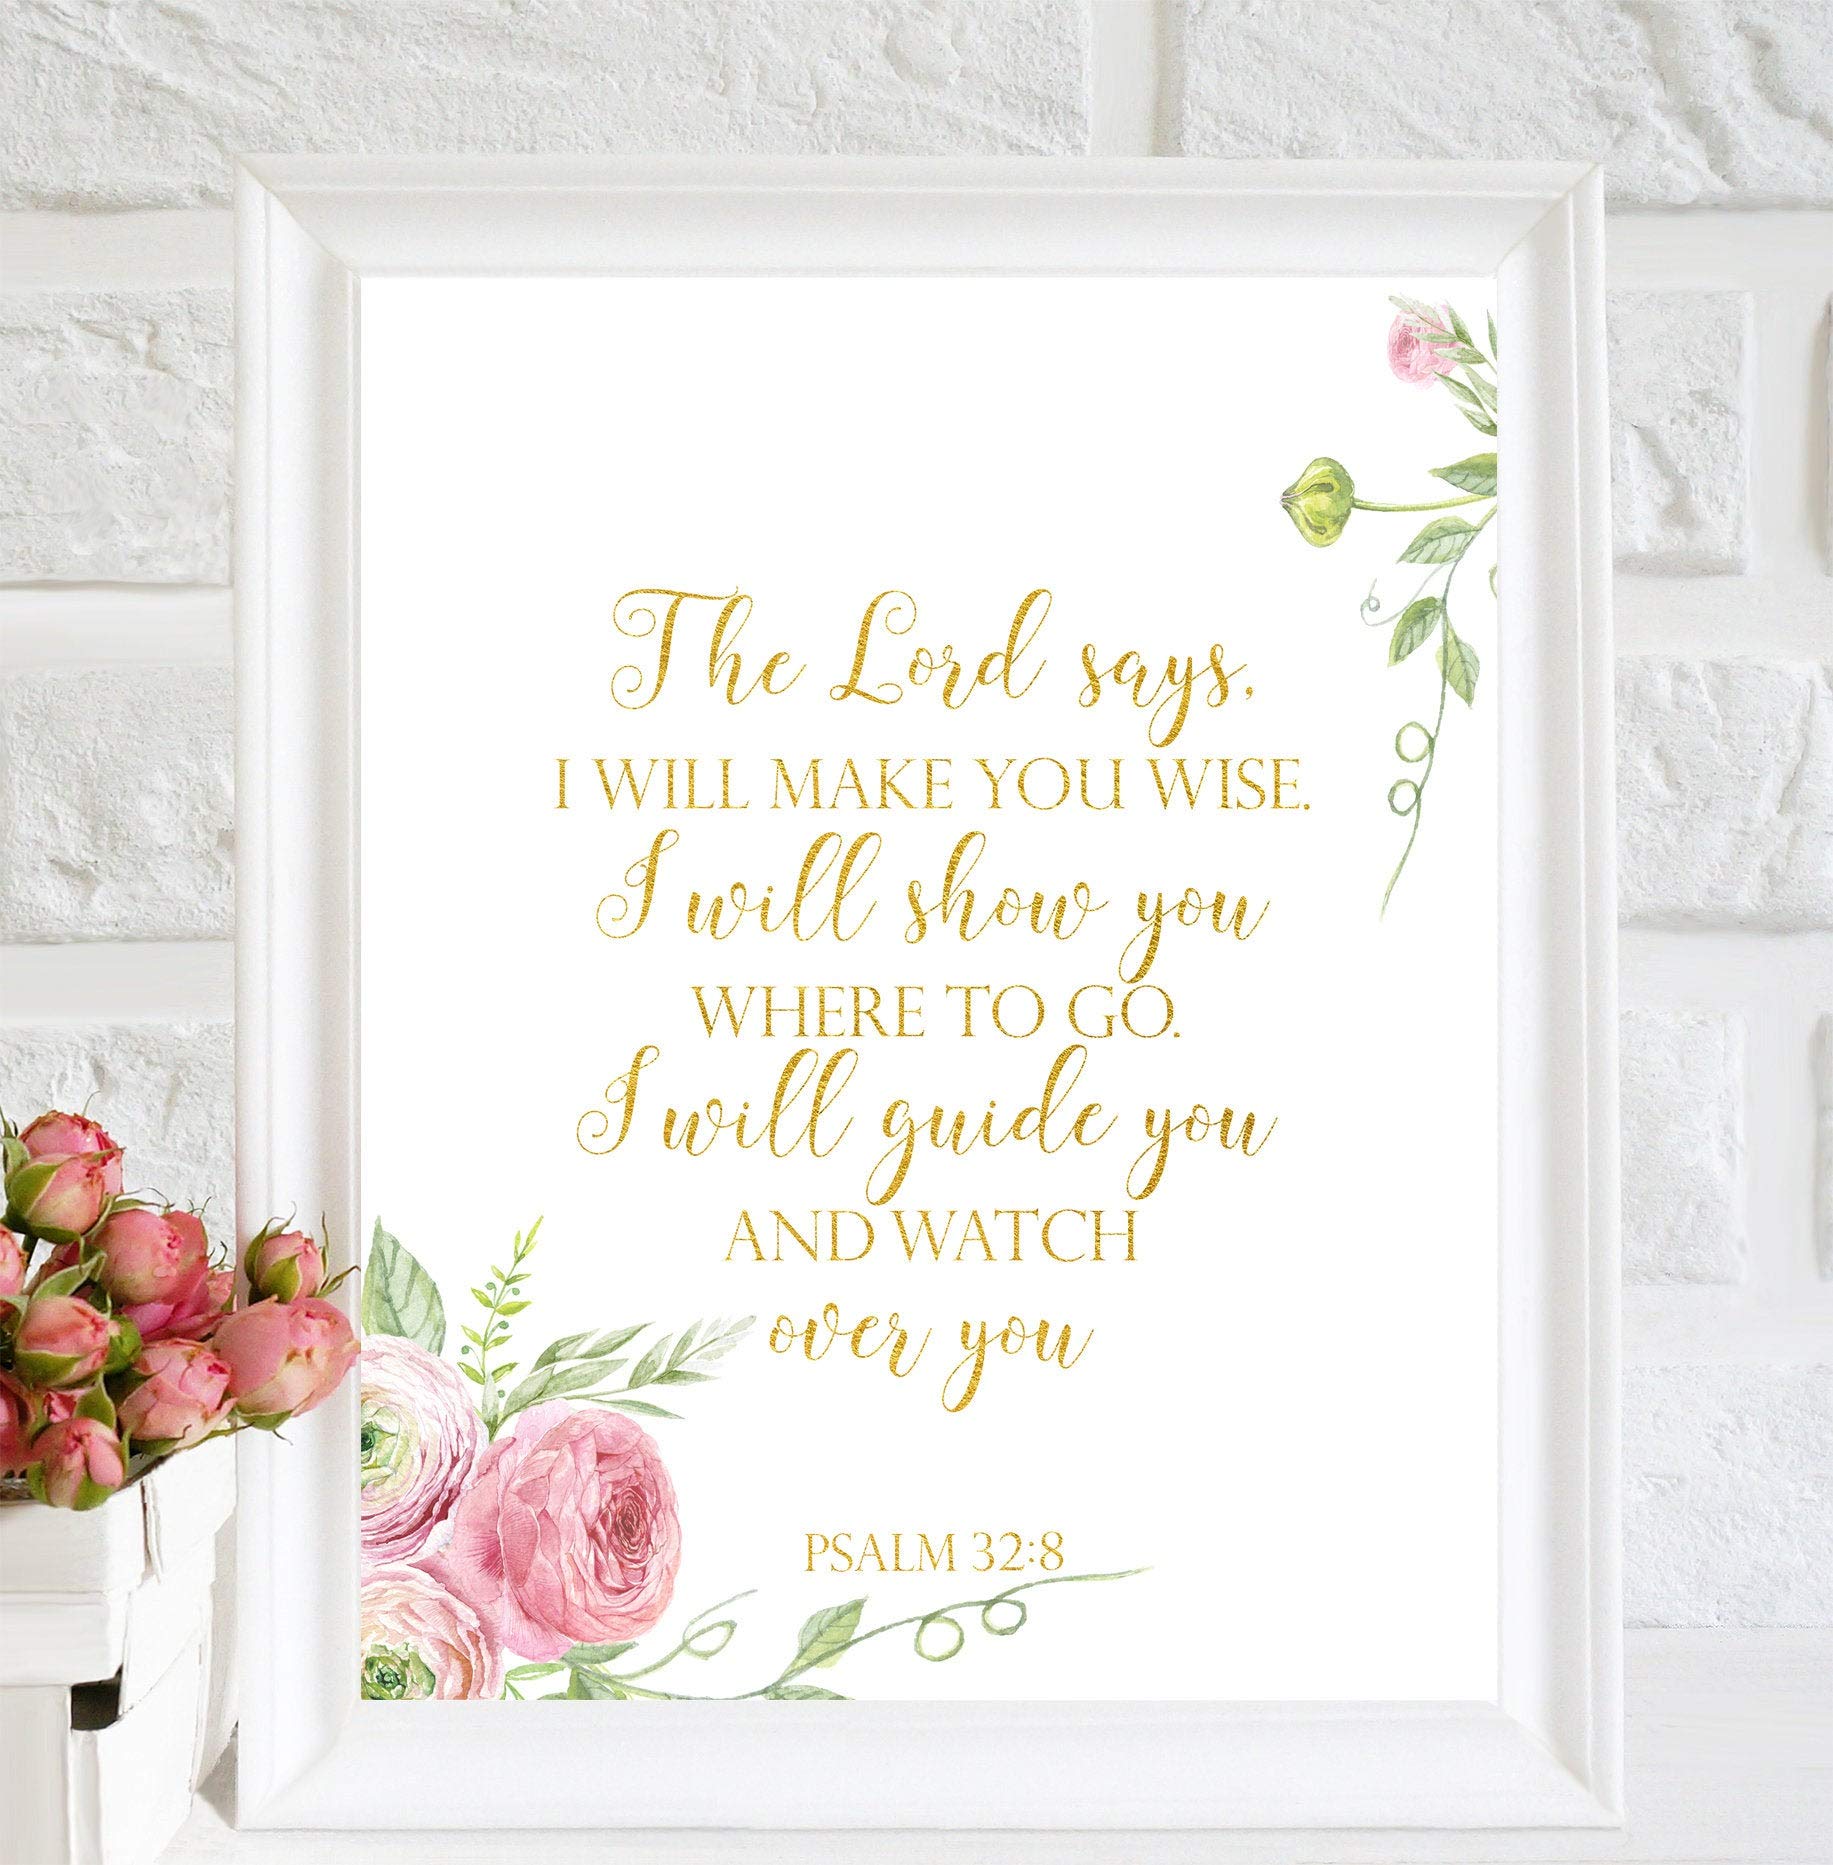 The Lord says,
I WILL MAKE YOU WISE.
I will show you
WHERE TO GO.
I will guide you
AND WATCH
over you
PSALM 32:8